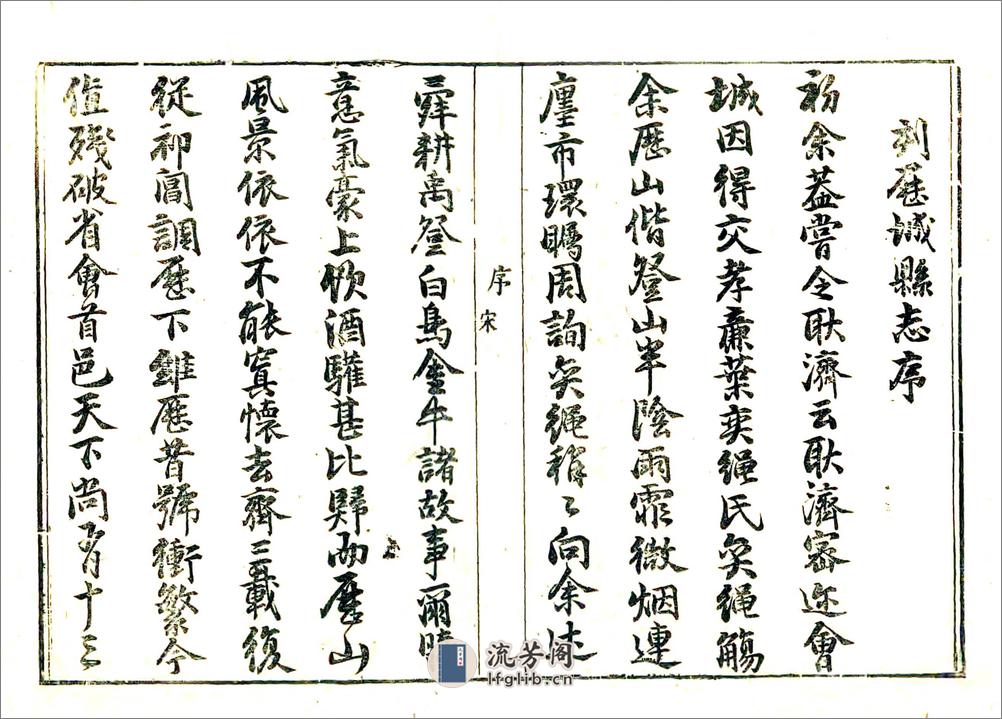 刻歷城縣志序
初余葢嘗令耿濟云耿濟密迩會
城因得交孝廉葉奕繩氏奕繩觴
余歷山偕登山半陰雨霏微烟連
廛市環矚周詢奕繩稍〻向余述
序 宋
舜耕禹登白鳥金牛諸故事爾時
意氣豪上酒驩甚比歸而歷山
風景依依不能寘懷去齊三載復
從調歷下雖歷昔號衝繁今
值殘破省會首邑天下尚有十三
流芳阁
lfglib.cn